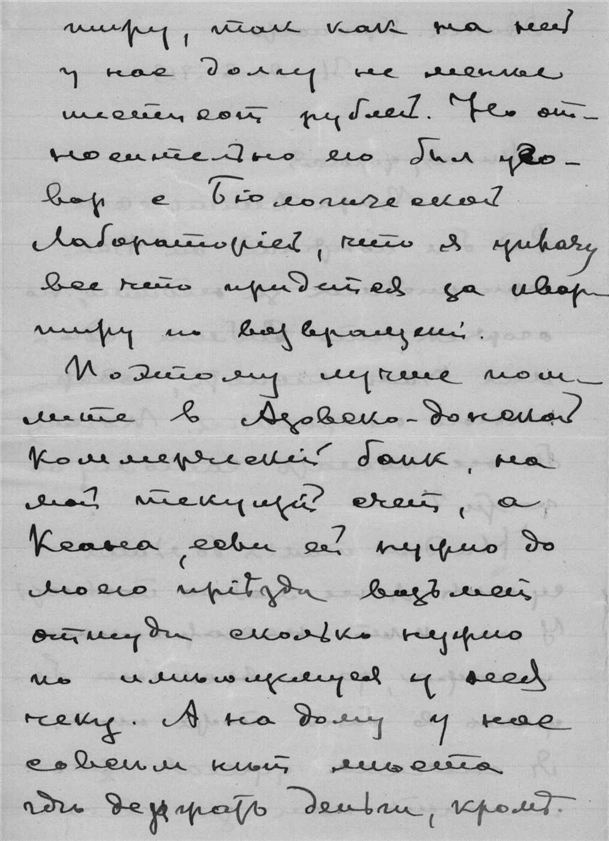 тиру, так как на ней
у нас долгу не менее
шестисот рублей. Но от-
носительно его был угo-
вор с Бiологической
Лабораторiей, что я уплачу
все что придется за квар-
тиру по возвращенi.
Поэтому лучше пош-
лите в Азовско-донской
Коммерческiй банк, на
мой текущiй счет, а
Ксана, если ей нужно до
моего прiѣзда возьмет
оттуда сколько нужно
по имѣющемуся у нея
чеку. А на дому у нас
совсѣм нѣт мѣста
гдѣ держать деньги, кромѣ.